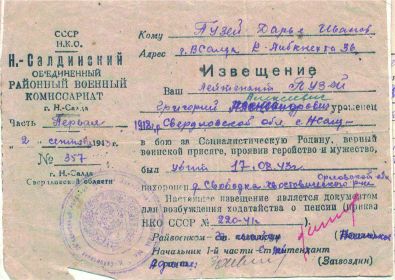 СССР
Н.К.О.
Н.-Салдинский
ОБЪЕДИНЕННЫЙ
РАЙОННЫЙ ВОЕННЫЙ
КОМИССАРИАТ
г. Н-Салда
Часть Первая
2 сентября 1943 г.
№ 357
г. Н-Салда
Свердловской области
Кому Пузей Дарья Иванов
Адрес В Салда
Извещение
Ваш лейтенант Пузей
Григорий Алексеевич уроженец
1918 г. Свердловской обл
в бою за Социалистическую Родину, верный
воинской присяге, проявив геройство и мужество,
был убит 17.08.43 г.
Орловской обл
похоронен д. Свободка Хвостовичского р-на
Настоящее извещение является документом
для возбуждения ходатайства о пенсии (приказ
НКО СССР № 220-41 г.
Райвоенком
Начальник 1-й части лейтенант
(Завоздин)